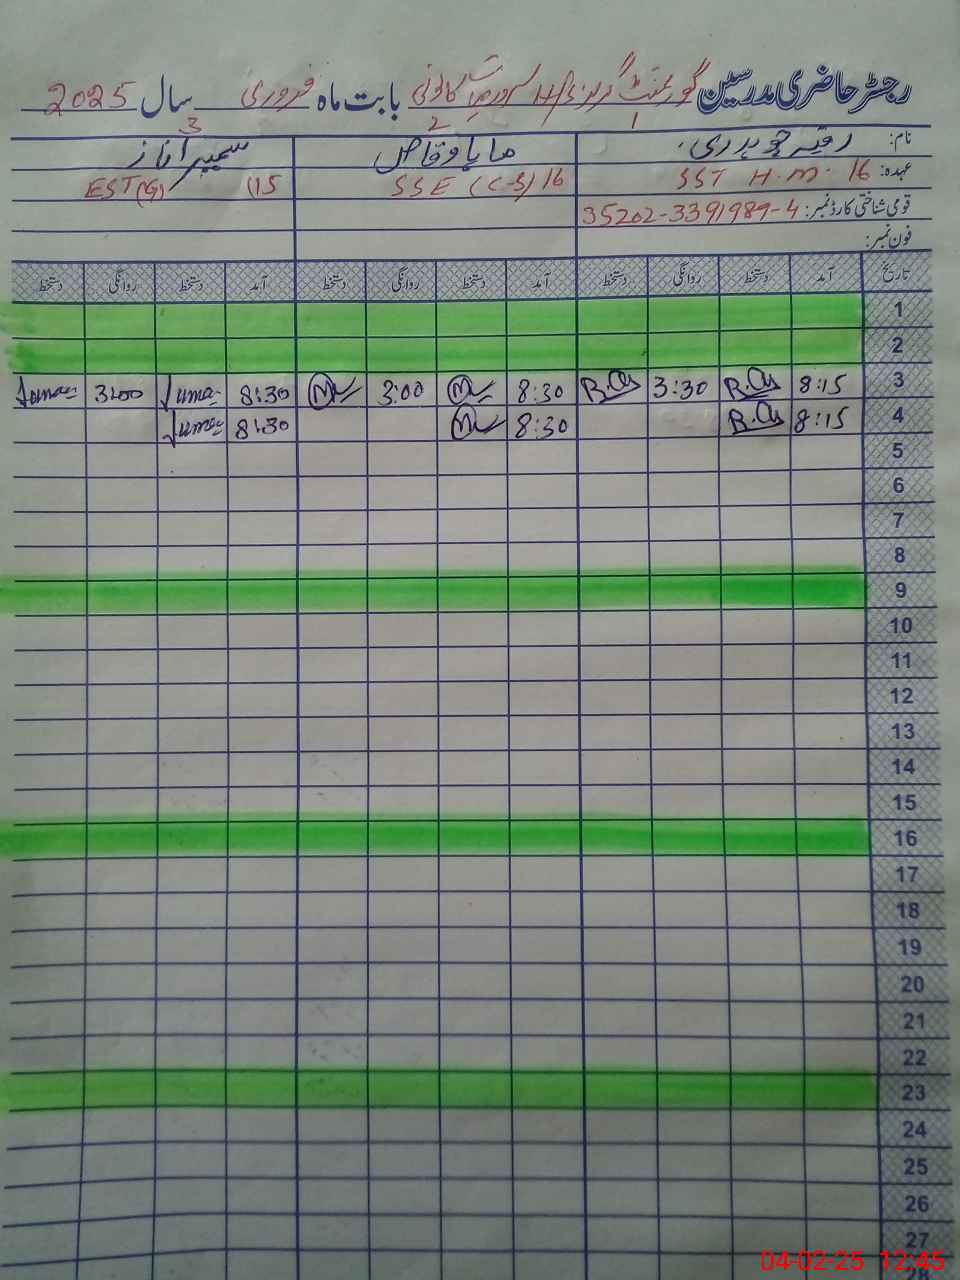 رجسٹر حاضری مدرسین گورنمنٹ گرلز H/S کالونی بابت ماہ فروری سال 2025
1 2 3
نام: رقیہ چوہدری ہما وقاص سمیرا ناز
عہدہ: SST H.M. 16 SSE (C-S) 16 EST(G) (15
قومی شناختی کارڈ نمبر: 35202-3391989-4
فون نمبر:
تاریخ آمد دستخط روانگی دستخط آمد دستخط روانگی دستخط آمد دستخط روانگی دستخط
1
2
3 8:15 3:30 8:30 3:00 8:30 3:00
4 8:15 8:30 8:30
5
6
7
8
9
10
11
12
13
14
15
16
17
18
19
20
21
22
23
24
25
26
27
28
04-02-25 12:45